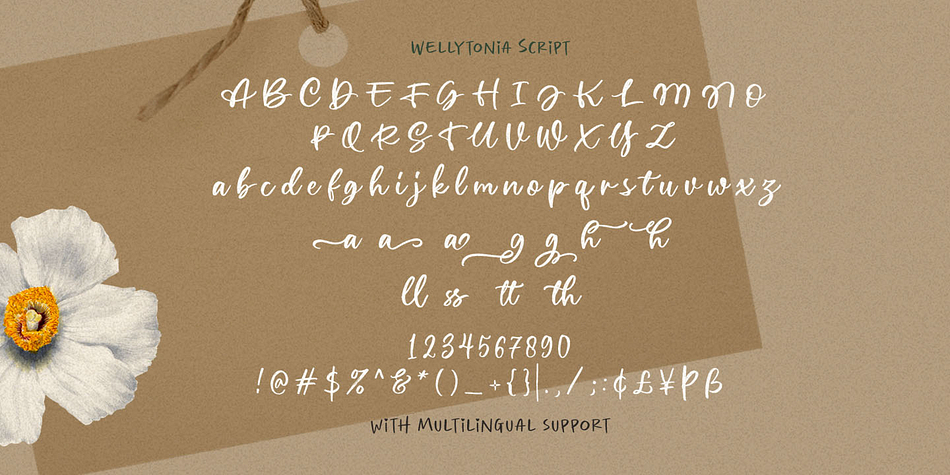 WELLYTONIA SCRIPT
A B C D E F G H I J K L M N O
P Q R S T U V W X Y Z
a b c d e f g h i j k l m n o p q r s t u v w x z
a a a g g h h
ll ss tt th
1 2 3 4 5 6 7 8 9 0
! @ # $ % ^ & * ( ) _ + { } | . , / ; : ¢ £ ¥ Þ ß
WITH MULTILINGUAL SUPPORT